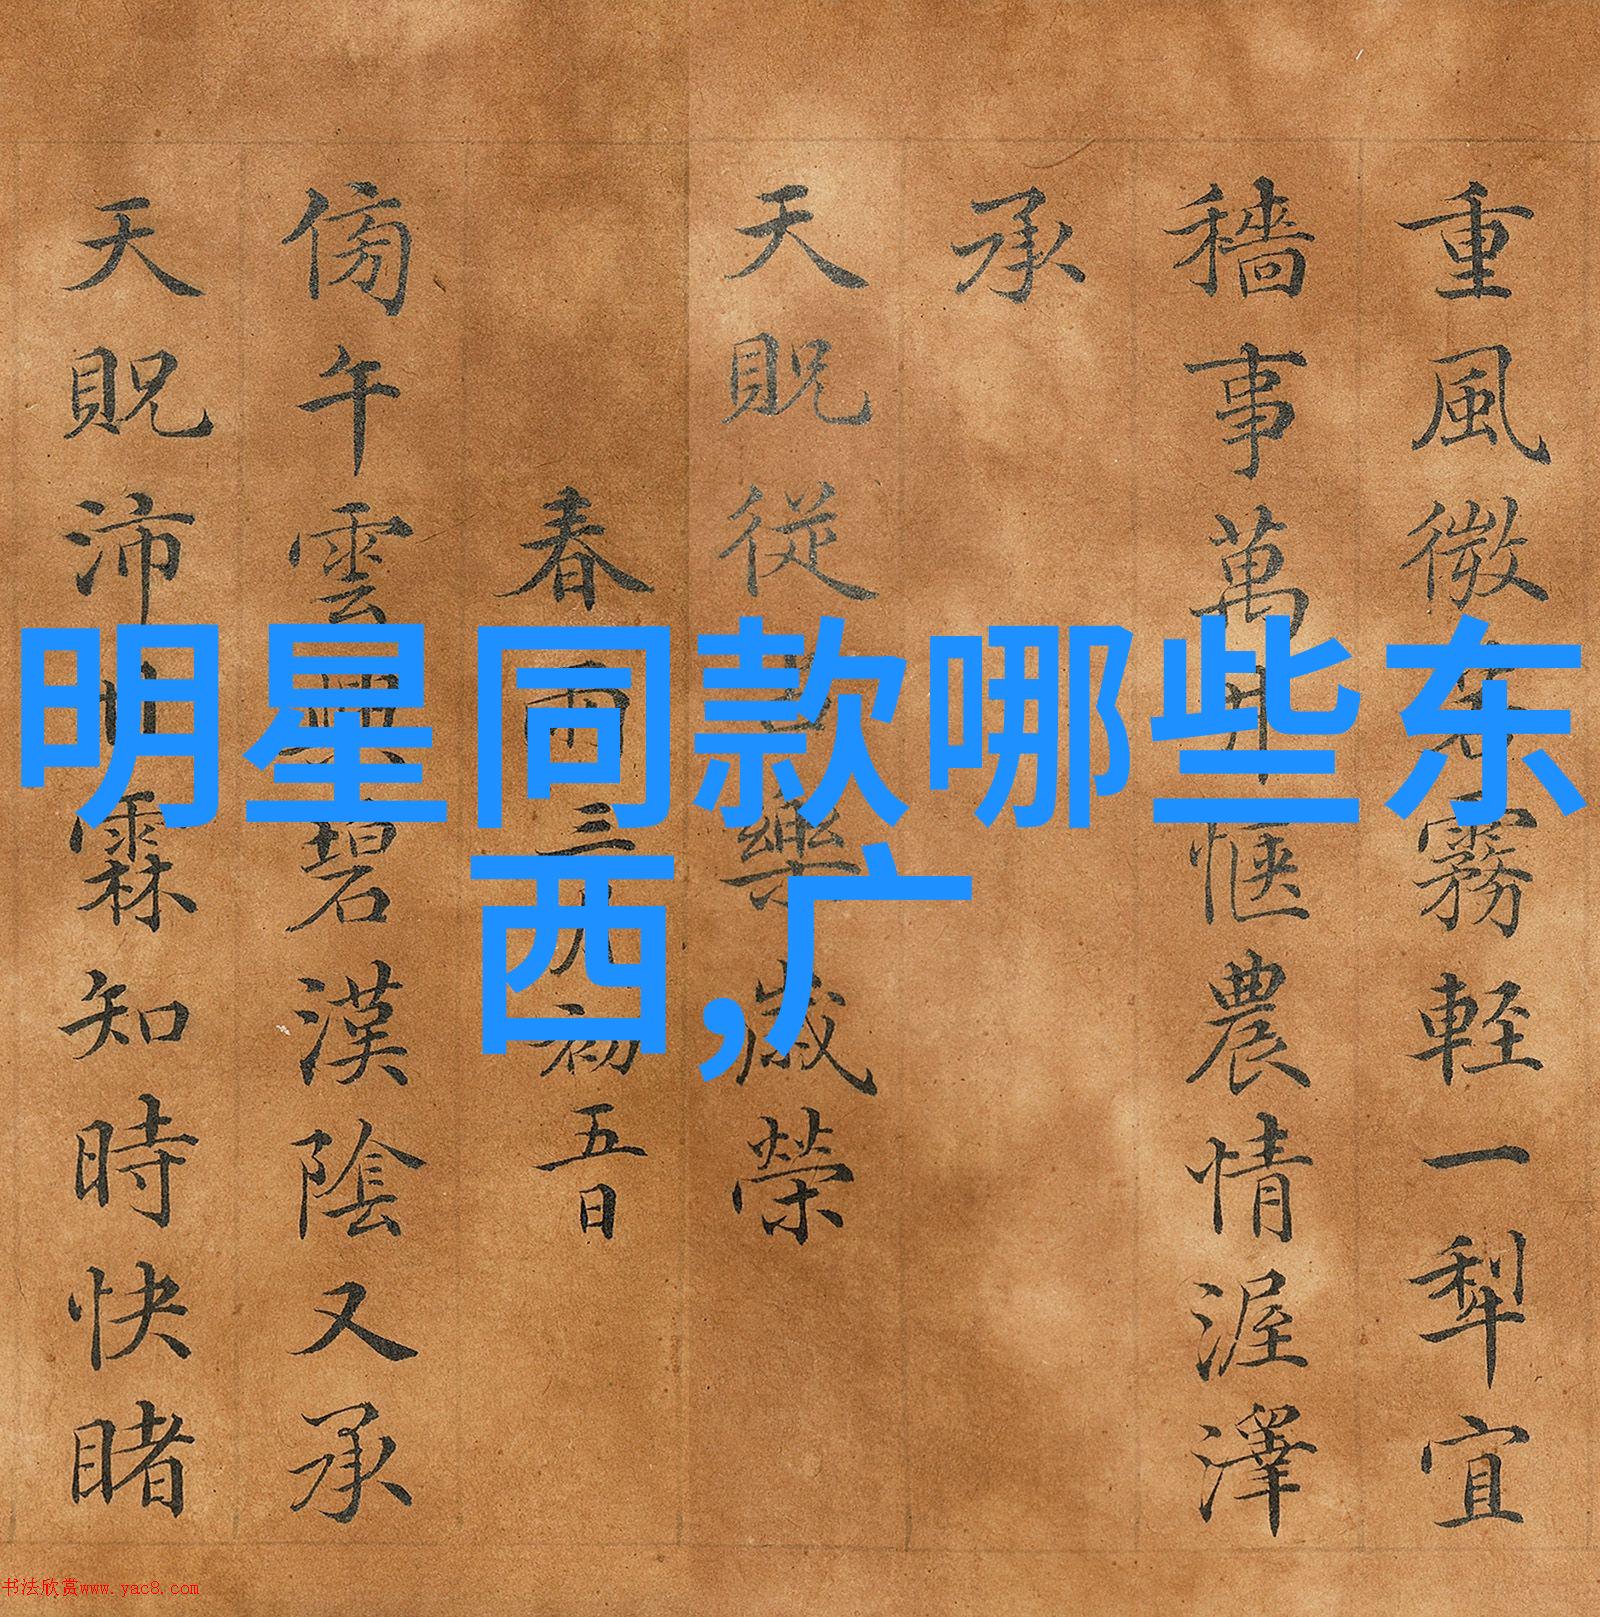 明星同款哪些东
西,广
重風微霧輕一犁宜
穡事萬愜農情渥澤
承
天貺從樂歲榮
春雨三初五日
傍午雲興碧漢陰又承
天貺沛霖知時快睹
书法欣赏www.yac8.com